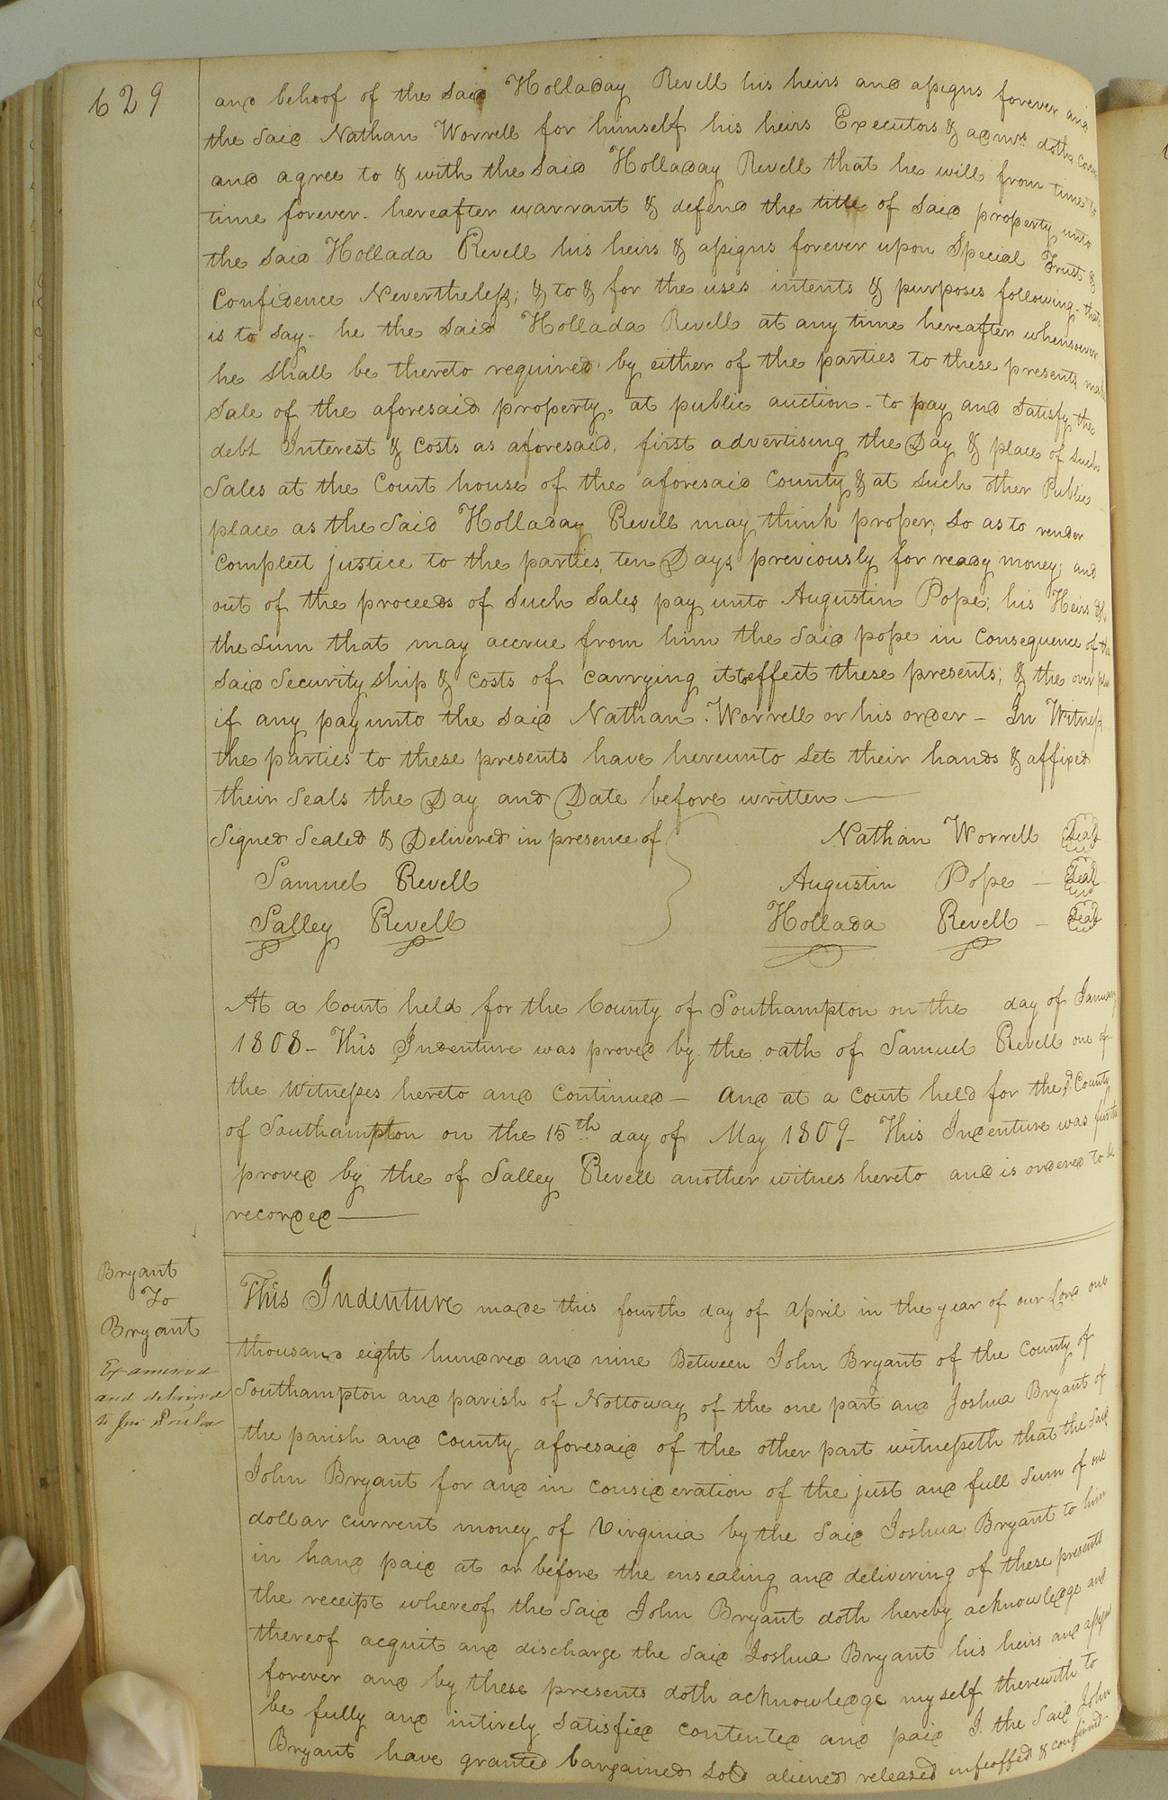 629
and behoof of the said Holladay Revell his heirs and assigns forever and
the said Nathan Worrell for himself his heirs Executors & admrs doth
and agree to & with the said Holladay Revell that he will from time to
time forever hereafter warrant & defend the title of said property unto
the said Hollada Revell his heirs & assigns forever upon Special Trust &
Confidence Nevertheless; & to & for the uses intents & purposes following, that
is to say - he the said Hollada Revell at any time hereafter whensoever
he shall be thereto required by either of the parties to these presents make
Sale of the aforesaid property, at public auction - to pay and satisfy the
debt Interest & Costs as aforesaid. first advertising the Day & place of such
Sales at the Court house of the aforesaid County & at such other Public
place as the said Holladay Revell may think proper, so as to render
compleet justice to the parties, ten Days previously for ready money; and
out of the proceeds of such sales pay unto Augustin Pope; his Heirs &c
the sum that may accrue from him the said pope in Consequence of the
said Security ship & Costs of carrying itto effect these presents; & the over plus
if any pay unto the said Nathan Worrell or his order - In Witness
the parties to these presents have hereunto set their hands & affixed
their seals the Day and Date before written —
Signed Sealed & Delivered in presence of
Nathan Worrell Seal
Samuel Revell
Augustin Pope - Seal
Salley Revell
Hollada Revell - Seal
At a Court held for the County of Southampton on the day of January
1808 - This Indenture was proved by the oath of Samuel Revell one of
the Witnesses hereto and Continued - And at a Court held for the sd County
of Southampton on the 15th day of May 1809 - This Indenture was further
proved by the of Salley Revell another witness hereto and is ordered to be
recorded —
Bryant
To
Bryant
Examined
and delivered
to
This Indenture made this fourth day of April in the year of our Lord one
thousand eight hundred and nine Between John Bryant of the County of
Southampton and parish of Nottoway of the one part and Joshua Bryant of
the parish and County aforesaid of the other part witnesseth that the said
John Bryant for and in consideration of the just and full Sum of one
dollar current money of Virginia by the said Joshua Bryant to him
in hand paid at or before the ensealing and delivering of these presents
the receipt whereof the said John Bryant doth hereby acknowledge and
thereof acquit and discharge the said Joshua Bryant his heirs and assigns
forever and by these presents doth acknowledge myself therewith to
be fully and intirely satisfied contented and paid I the said John
Bryant have granted bargained Sold aliened released enfeoffed & confirmed